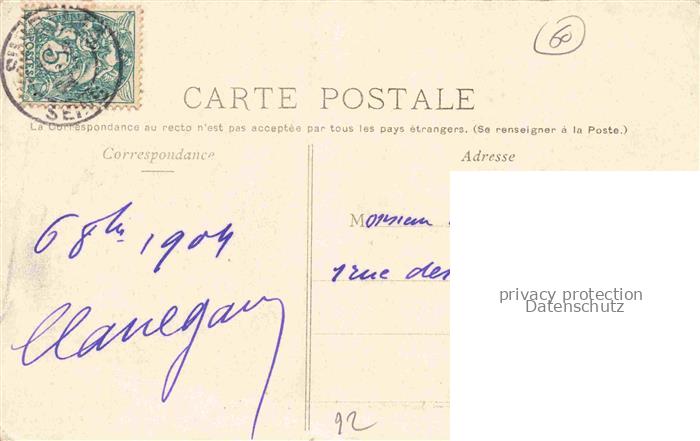 5
POSTES
SEINE
60
CARTE POSTALE
La Correspondance au recto n'est pas acceptée par tous les pays étrangers. (Se renseigner à la Poste.)
Correspondance
Adresse
6 8bre 1904
Monsieur
1 rue des
privacy protection
Datenschutz
92